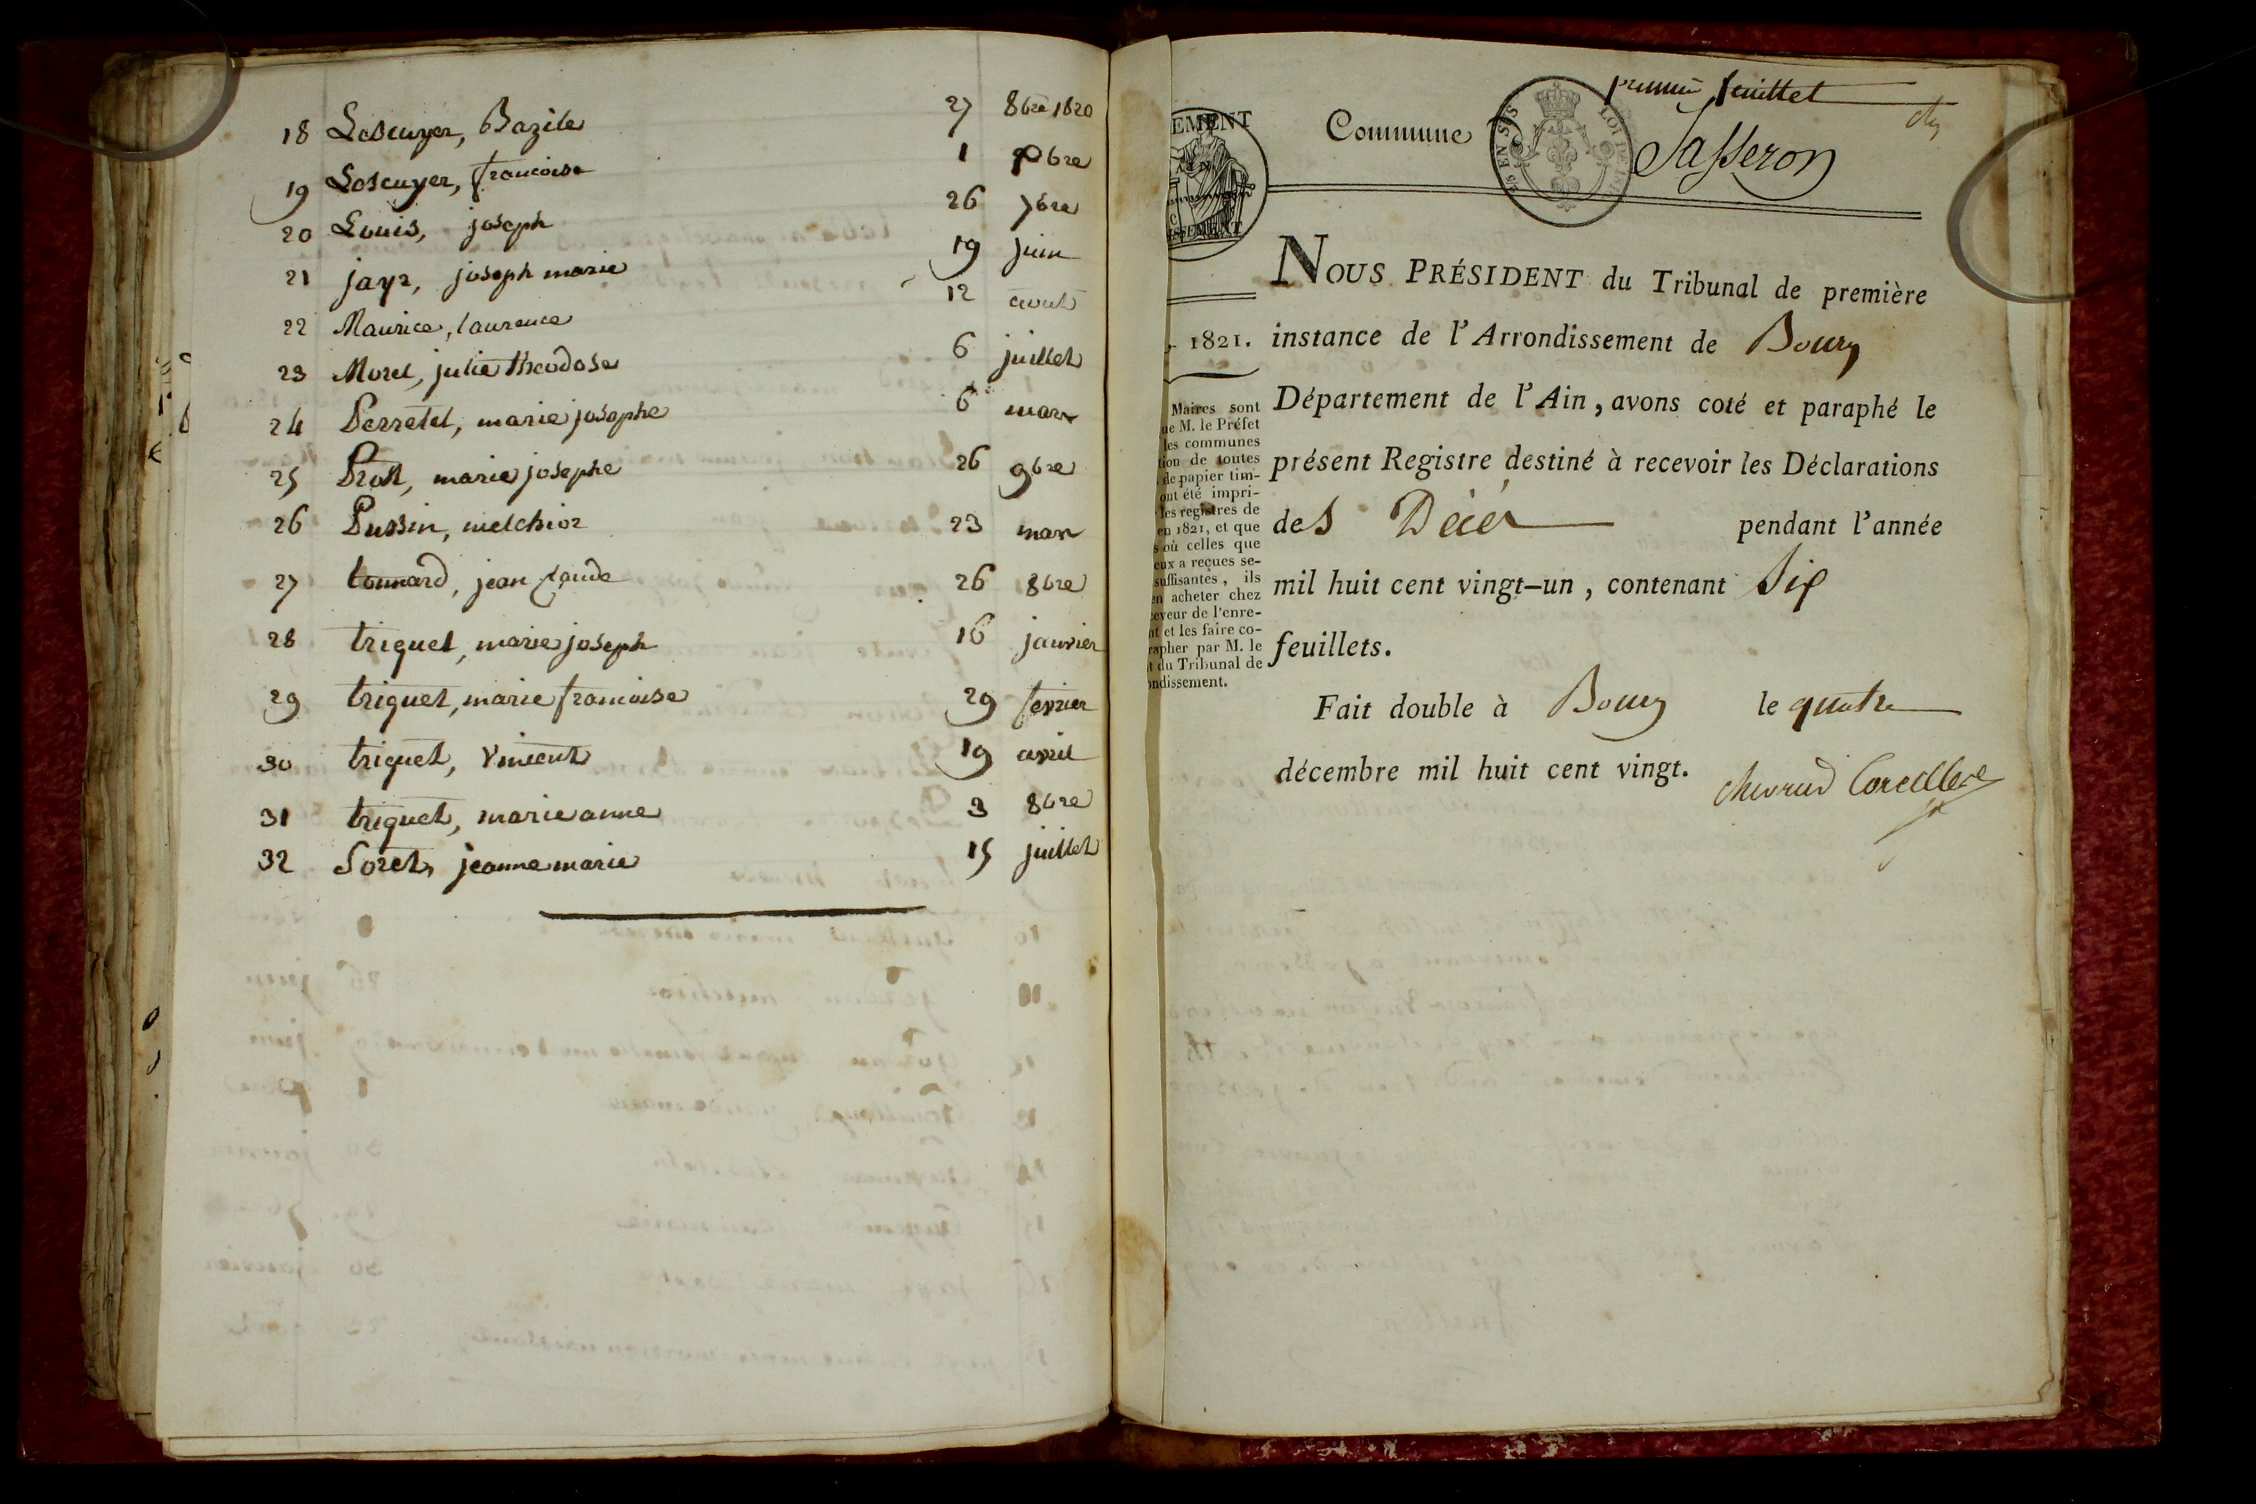 18 Lescuyer, Bazile 27 8bre 1820
19 Lescuyer, francoise 1 9bre
20 Louis, joseph 26 7bre
21 jayr, joseph marie 19 juin
22 Maurice, laurence 12 aout
23 Morel, julie theodose 6 juillet
24 Perretet, marie josephe 6 mars
25 Prost, marie josephe 26 9bre
26 Pussin, melchior 23 mars
27 tonnard, jean claude 26 8bre
28 triquet, marie joseph 16 janvier
29 triquet, marie francoise 29 fevrier
30 triquet, Vincent 19 avril
31 triquet, marie anne 3 8bre
32 Soret, jeanne marie 15 juillet
premier feuillet
Commune Jasseron
NOUS PRÉSIDENT du Tribunal de première
instance de l'Arrondissement de Bourg
Département de l'Ain, avons coté et paraphé le
présent Registre destiné à recevoir les Déclarations
des Décès pendant l'année
mil huit cent vingt-un, contenant Six
feuillets.
Fait double à Bourg le quatre
décembre mil huit cent vingt.
EMENT
1821.
Maires sont
M. le Préfet
les communes
de toutes
de papier tim-
ont été impri-
les registres de
en 1821, et que
où celles que
a reçues se-
suffisantes, ils
acheter chez
de l'enre-
et les faire co-
par M. le
du Tribunal de